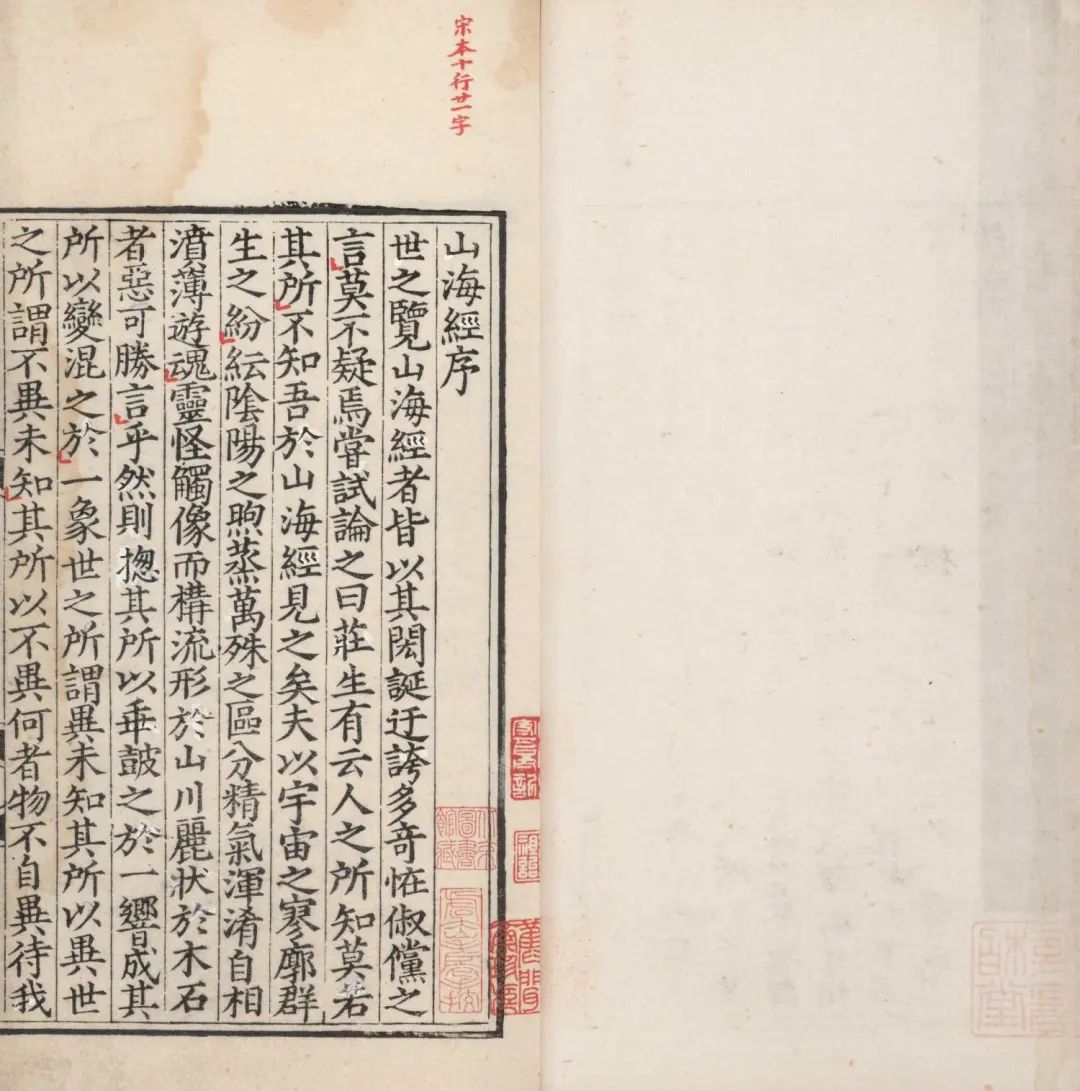 宋本十行廿一字
山海經序
世之覽山海經者皆以其閎誕迂誇多奇恠俶儻之
言莫不疑焉嘗試論之曰莊生有云人之所知莫若
其所不知吾於山海經見之矣夫以宇宙之寥廓群
生之紛紜陰陽之煦蒸萬殊之區分精氣渾淆自相
濆薄遊魂靈怪觸像而構流形於山川麗狀於木石
者惡可勝言乎然則揔其所以乖皷之於一響成其
所以變混之於一象世之所謂異未知其所以異世
之所謂不異未知其所以不異何者物不自異待我